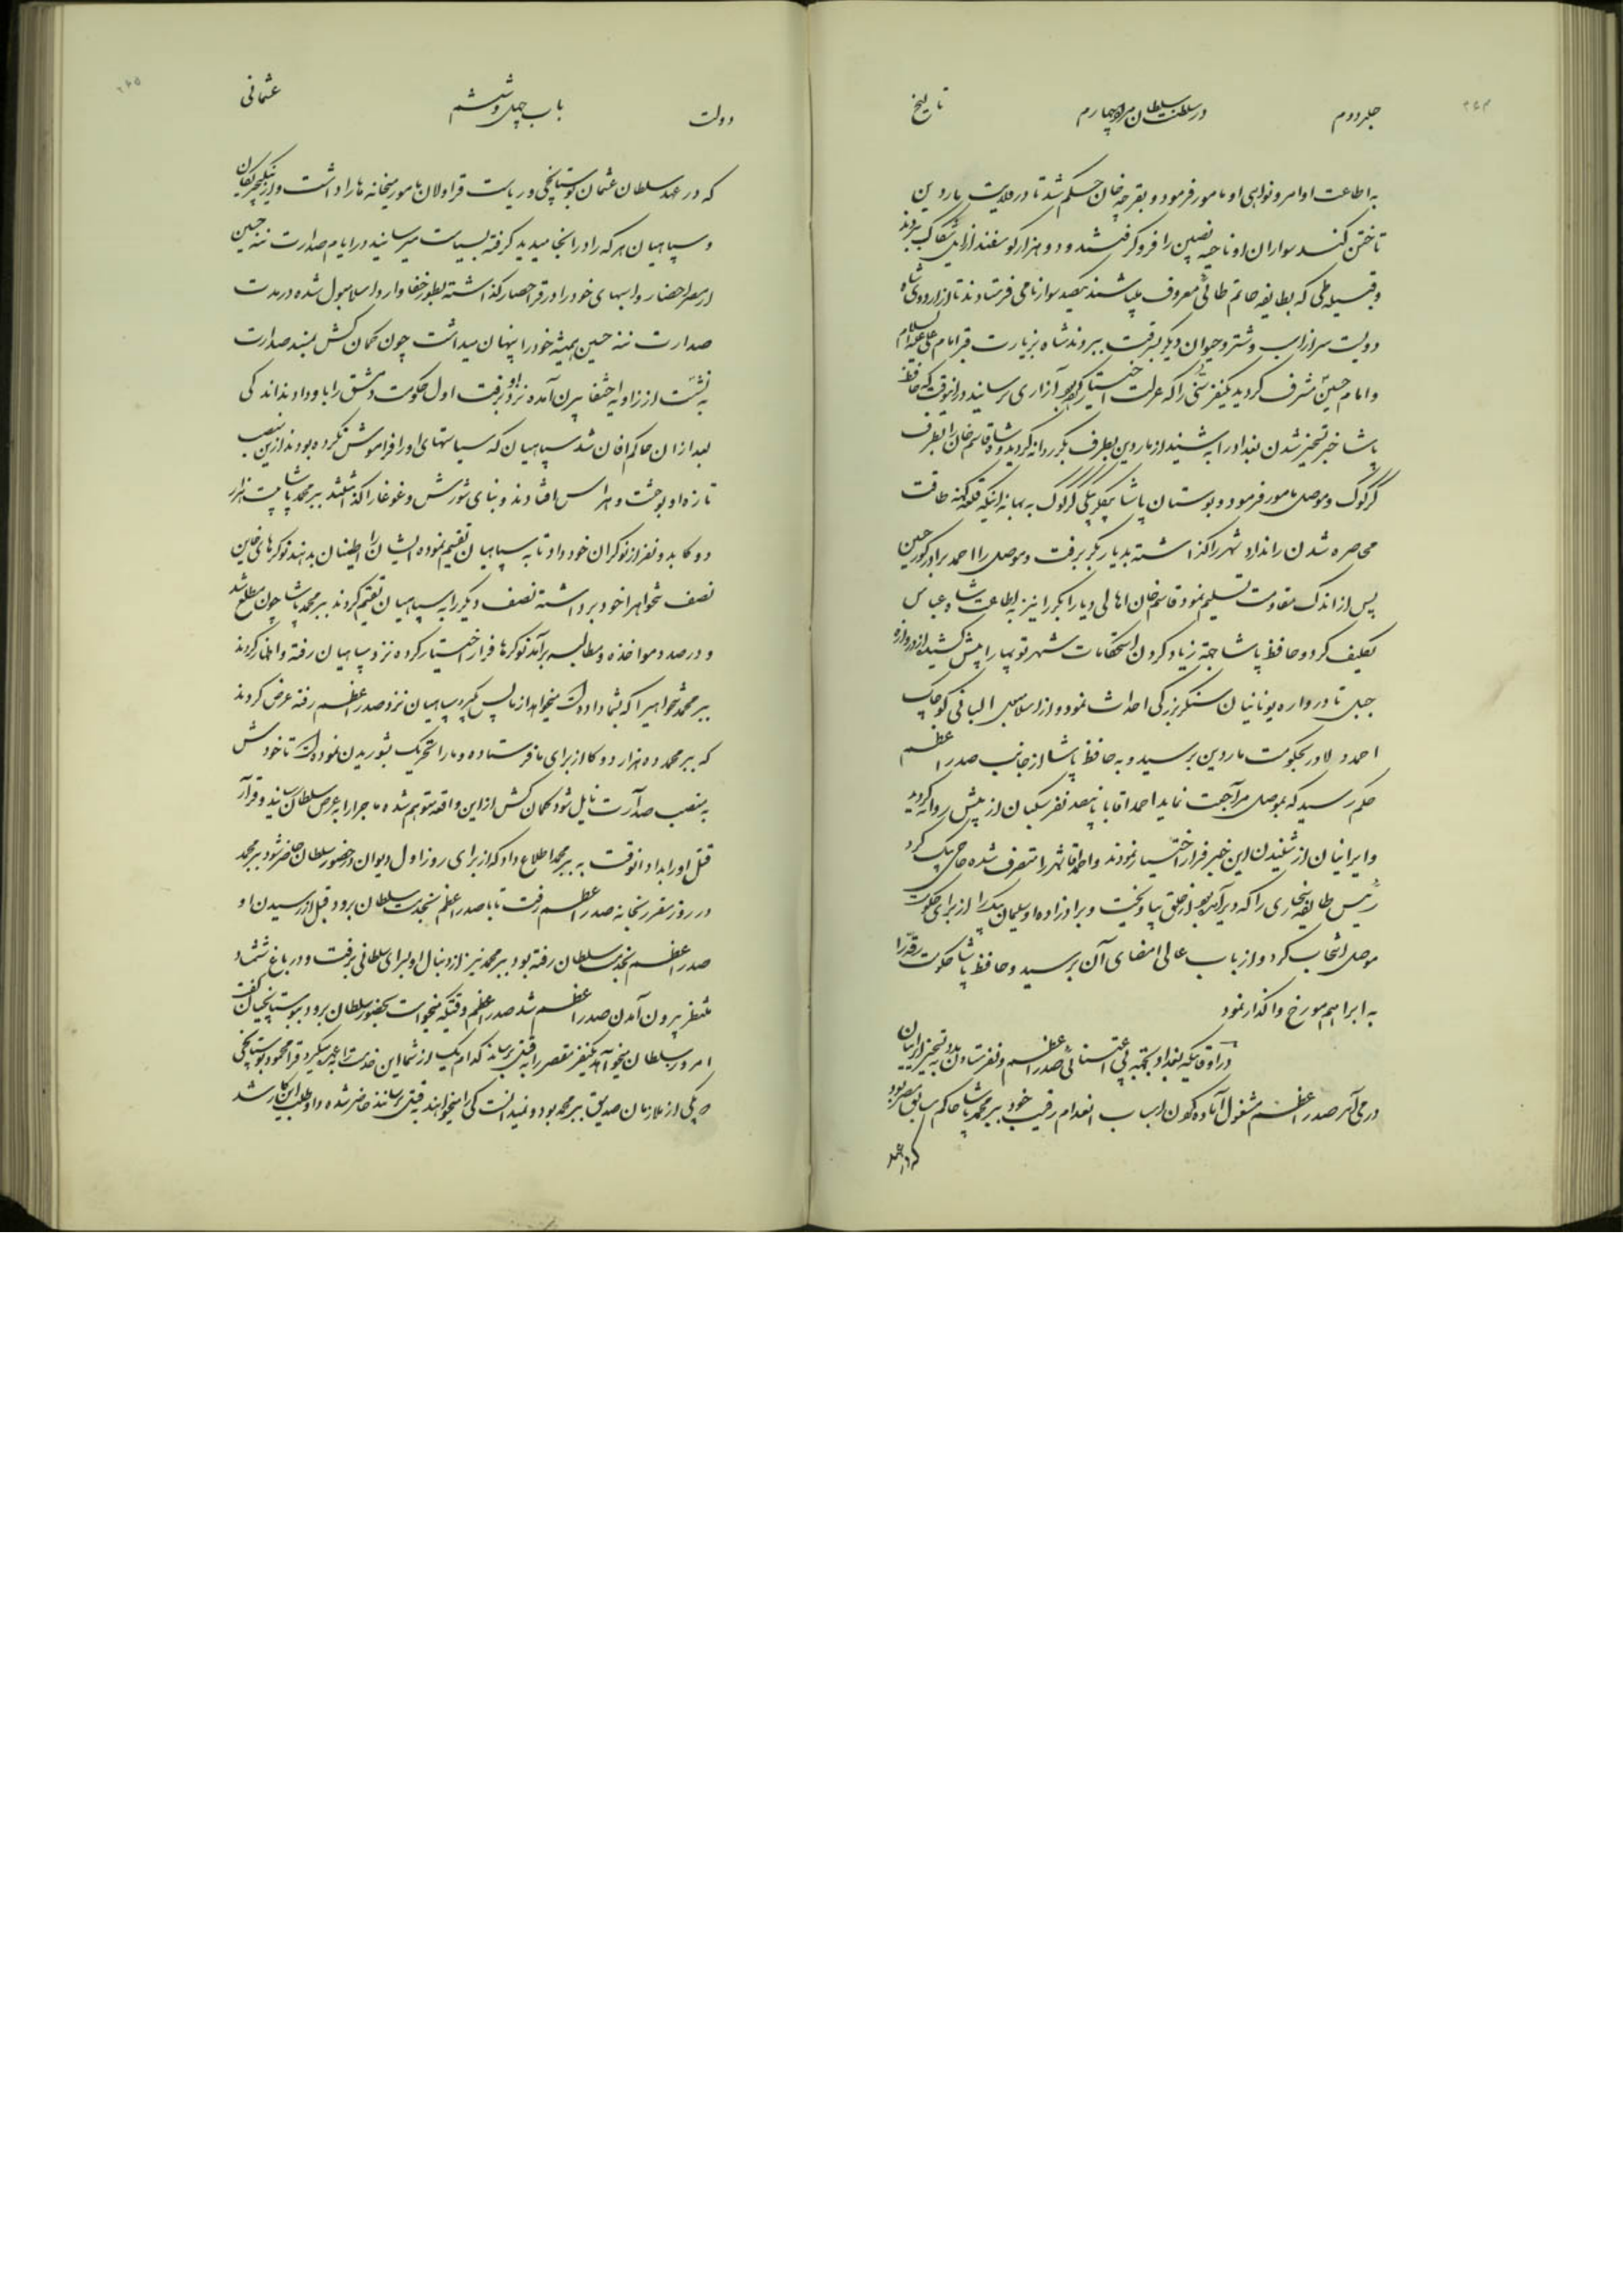 جلد دوم
در سلطنت سلطان مراد چهارم
تاریخ
به اطاعت اوامر و نواهی او مامور فرمود و بقرجه خان حکم شد تا در ولایت ماردین
تاختن کنند سواران او ناحیه نصیبین را فرو گرفتند و دو هزار گوسفند از ایل شکاک ببردند
و قبیله طی که بطایفه حاتم طائی معروف میباشند یکصد سوار نامی فرستادند تا از اردوی شاه
دویست سر از اسب و شتر و حیوان دیگر بسرقت ببردند شاه بزیارت قبر امام علی علیه السلام
و امام حسین مشرف گردید یکنفر سنی را که عزلت اختیار کرده بود آزاری نرسانید در آنوقت که حافظ
پاشا خبر تسخیر شدن بغداد را بشنید از ماردین بطرف دیاربکر روانه گردید و شاه قاسم خان را بطرف
کرکوک و موصل مامور فرمود و بوستان پاشا بیگلربیگی کرکوک به بهانه اینکه قلعه کهنه طاقت
محاصره شدن را ندارد شهر را گذاشته بدیاربکر برفت و موصل را احمد برادر کور حسین
پس از اندک مقاومت تسلیم نمود قاسم خان اهالی دیاربکر را نیز به اطاعت شاه عباس
تکلیف کرد و حافظ پاشا جهته زیاد کردن استحکامات شهر توپها را پیش کشیده از دروازه
جبل تا دروازه یونانیان سنگر بزرگی احداث نمود و از اسلامبول البانی کوچک
احمد دلاور بحکومت ماردین برسید و به حافظ پاشا از جانب صدر اعظم
حکم رسید که بموصل مراجعت نماید احمد اقا با پانصد نفر سگبان از پیش روانه گردید
و ایرانیان از شنیدن این خبر فرار اختیار نمودند و احمد اقا شهر را متصرف شده حاجی بیک کرد
رئیس طایفه سنجاری را که دیر آمده بود از حلق بیاویخت و برادرزاده او سلیمان بیک را از برای حکومت
موصل انتخاب کرد و از باب عالی امضای آن برسید و حافظ پاشا حکومت رقه را
به ابراهیم مورخ واگذار نمود
در اوقاتیکه بغداد بجهته بی اعتنائی صدر اعظم و نفرستادن مدد به تسخیر ایرانیان
در می آمد صدر اعظم مشغول آماده کردن اسباب انعدام رقیب خود ببر محمد پاشا حاکم سابق مصر بود
که در عهد
دولت
باب چهل و ششم
عثمانی
که در عهد سلطان عثمان بوستانچی و ریاست قراولان مامور میخانه ها را داشت و از ینگیچریکان
و سپاهیان هر که را در آنجا میدید گرفته بسیاست میرسانید در ایام صدارت مره حسین
از مصر احضار و اسبهای خود را در قراحصار گذاشته بطور خفا وارد اسلامبول شده در مدت
صدارت مره حسین همیشه خود را پنهان میداشت چون کمان کش بمسند صدارت
به نشست از زاویه اختفا بیرون آمده نزد او برفت اول حکومت دمشق را باو دادند اندکی
بعد ازان حاکم افان شد سپاهیان که سیاستهای او را فراموش نکرده بودند ازین منصب
تازه او بوحشت و هراس افتادند و بنای شورش و غوغا را گذاشتند ببر محمد پاشا بیست هزار
دوکا بدو نفر از نوکران خود داد تا به سپاهیان تقسیم نموده ایشان را اطمینان بدهند نوکرهای خاین
نصف تنخواه را خود برداشته نصف دیگر را به سپاهیان تقسیم کردند ببر محمد پاشا چون مطلع شد
و درصدد مواخذه و مطالبه برآمد نوکرها فرار اختیار کرده نزد سپاهیان رفته و اظهار کردند
ببر محمد تنخواهیرا که بشما داده است میخواهد از ما پس بگیرد سپاهیان نزد صدر اعظم رفته عرض کردند
که ببر محمد ده هزار دوکا از برای ما فرستاده و ما را تحریک بشوریدن نموده است تا خودش
به منصب صدارت نایل شود کمان کش ازین واقعه متوهم شده ماجرا را به عرض سلطان رسانید و قرار
قتل او را بداد انوقت به ببر محمد اطلاع داد که از برای روز اول دیوان در حضور سلطان حاضر شود ببر محمد
در روز مقرر بخانه صدر اعظم رفت تا با صدر اعظم بخدمت سلطان برود قبل از رسیدن او
صدر اعظم بخدمت سلطان رفته بود ببر محمد نیز از دنبال او بسرای سلطانی برفت و در باغ شمشاد
منتظر بیرون آمدن صدر اعظم شد صدر اعظم وقتیکه میخواست بحضور سلطان برود ببوستانچیان گفت
امروز سلطان میخواهد یکنفر مقصر را به قتل برساند کدام یک از شما این خدمت را بعهده میگیرد قرا محمود بوستانچی
که یکی از ملازمان صدیق ببر محمد بود و نمیدانست کی را میخواهند به قتل برسانند حاضر شده داوطلب این کار شد